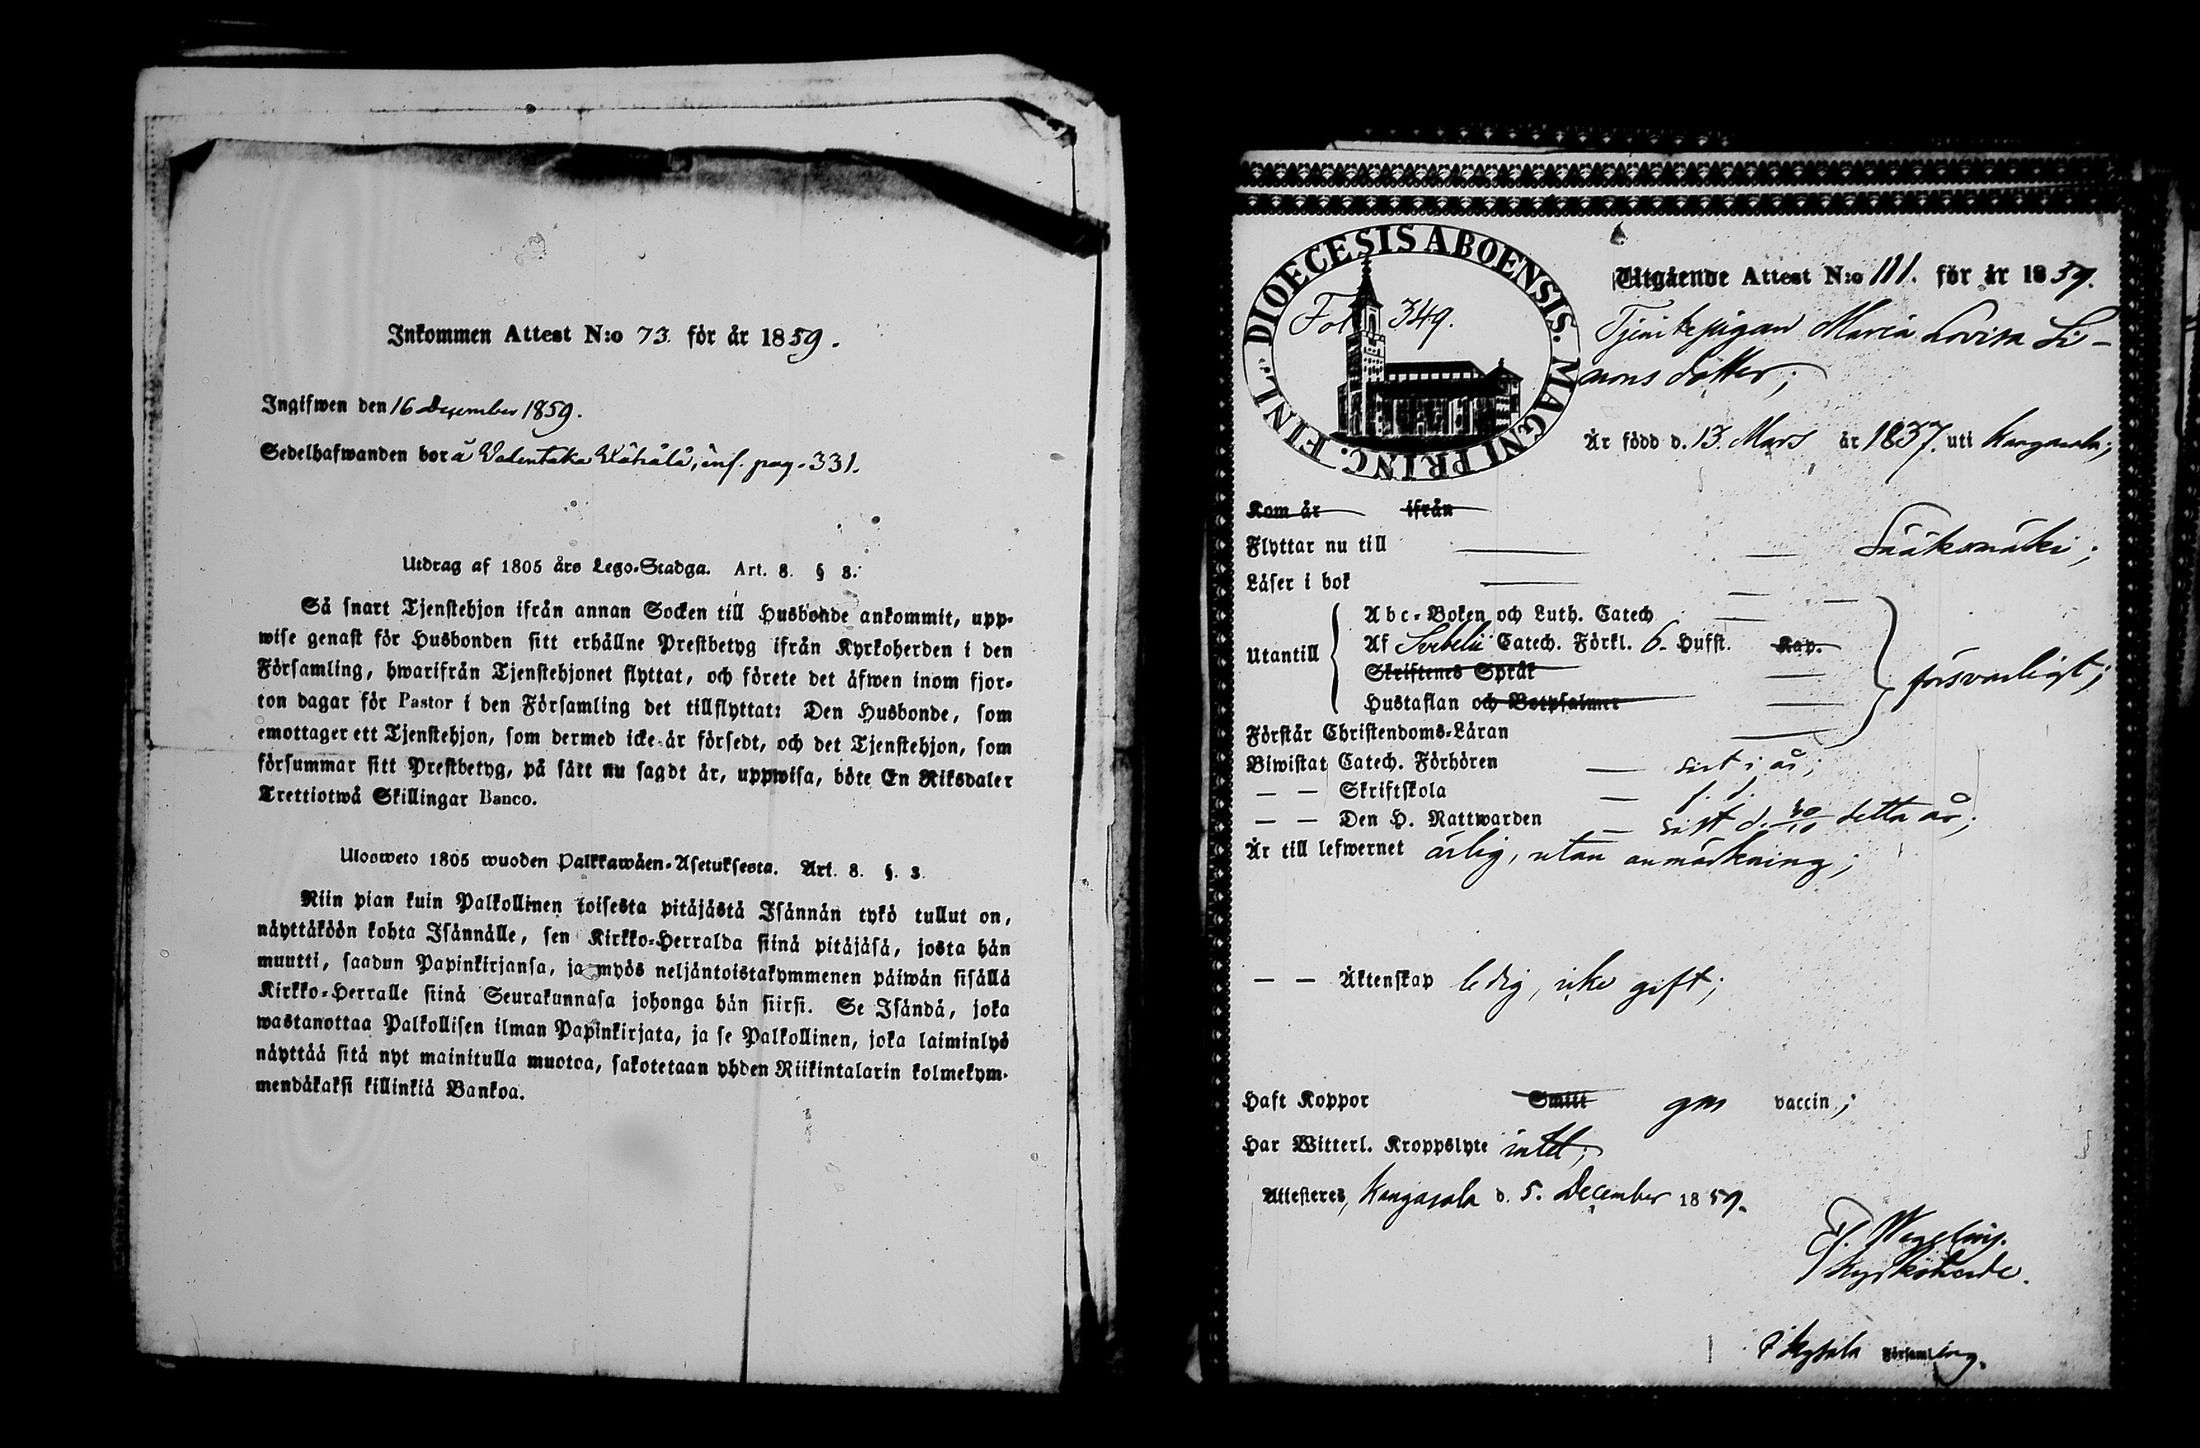 Inkommen Attest N:o 73. för år 1859.
Ingifwen den 16 December 1859.
Sedelhafwanden bor å Valentaka Wähälä, inf. pag. 331.
Utdrag af 1805 års Lego-Stadga. Art. 8. § 3.
Så snart Tjenstehjon ifrån annan Socken till Husbonde ankommit, upp-
wise genast för Husbonden sitt erhållne Prestbetyg ifrån Kyrkoherden i den
Församling, hwarifrån Tjenstehjonet flyttat, och förete det äfwen inom fjor-
ton dagar för Pastor i den Församling det tillflyttat: Den Husbonde, som
emottager ett Tjenstehjon, som dermed icke är försedt, och det Tjenstehjon, som
försummar sitt Prestbetyg, på sätt nu sagdt är, uppwisa, böte En Riksdaler
Trettiotwå Skillingar Banco.
Ulosweto 1805 wuoden Palkkawäen-Asetuksesta. Art. 8. §. 3.
Niin pian kuin Palkollinen toisesta pitäjästä Isännän tykö tullut on,
näyttäköön kohta Isännälle, sen Kirkko-Herralda siinä pitäjäsä, josta hän
muutti, saadun Papinkirjansa, ja myös neljäntoistakymmenen päiwän sisällä
Kirkko-Herralle siinä Seurakunnasa johonga hän siirsi. Se Isändä, joka
wastanottaa Palkollisen ilman Papinkirjata, ja se Palkollinen, joka laiminlyö
näyttää sitä nyt mainitulla muotoa, sakotetaan yhden Riikintalarin kolmekym-
mendäkaksi killinkiä Bankoa.
DIOECESIS ABOENSIS. MAGNI PRINC. FINL.
Fol. 349.
Utgående Attest N:o 111. för år 1859.
Tjenstepigan Maria Lovisa Si-
mons dotter;
Är född d. 13. Mars år 1837. uti Kangasala;
Kom år ifrån
Flyttar nu till Sääksmäki;
Läser i bok
Utantill
Abc-Boken och Luth. Catech
Af Svebelii Catech. Förkl. 6. Hufst. Kap.
Skriftenes Språk
Hustaflan och Botpsalmer
försvarligt;
Förstår Christendoms-Läran
Biwistat Catech. Förhören sist i år;
— — Skriftskola
— — Den H. Nattwarden sist d. 30/10 detta år;
Är till lefwernet ärlig, utan anmärkning;
— — Äktenskap ledig, icke gift;
Haft Koppor Smitt gm vaccin;
Har Witterl. Kroppslyte intet;
Attesteres, Kangasala d. 5. December 1859.
Kyrkoherde.
i Kgsala Församling.